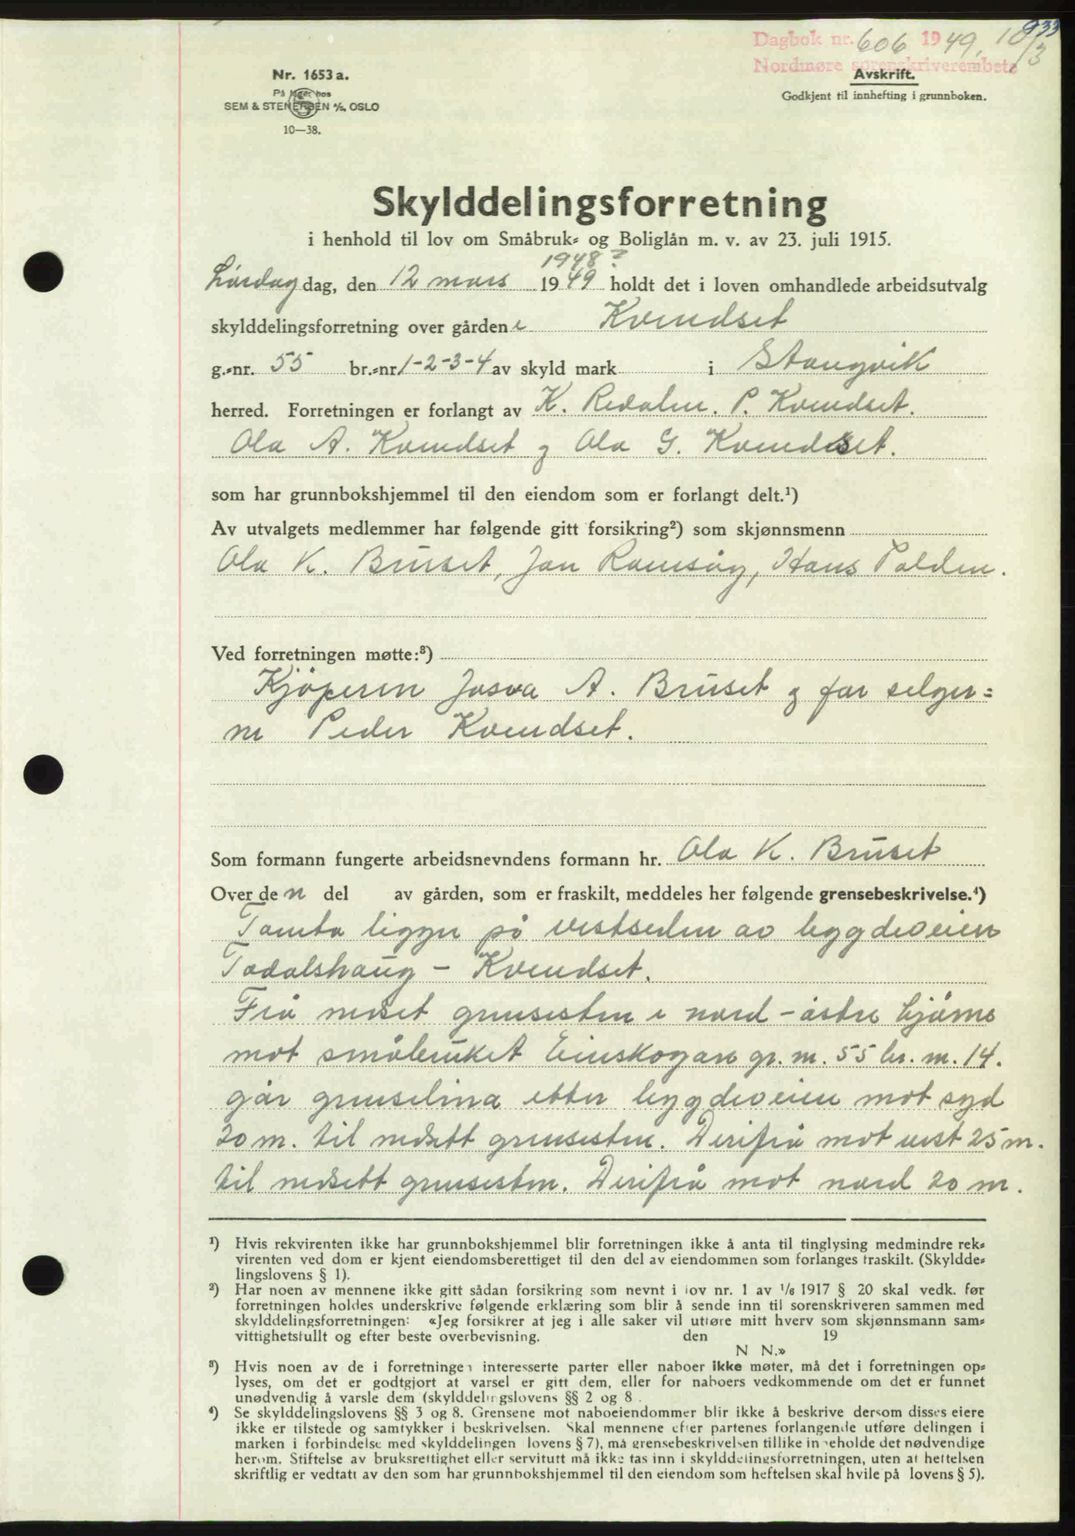 933
Dagbok nr. 606 1949, 10/3
Nordmøre sorenskriverembete
Nr. 1653 a.
På lager hos
SEM & STENERSEN A/S, OSLO
10—38.
Avskrift.
Godkjent til innhefting i grunnboken.
Skylddelingsforretning
i henhold til lov om Småbruk- og Boliglån m. v. av 23. juli 1915.
1948?
Lørdag dag, den 12 mars 1949 holdt det i loven omhandlede arbeidsutvalg
skylddelingsforretning over gårdene Kvendset
g.-nr. 55 br.-nr. 1-2-3-4 av skyld mark i Stangvik
herred. Forretningen er forlangt av K. Redalen. P. Kvendset.
Ola A. Kvendset og Ola G. Kvendset.
som har grunnbokshjemmel til den eiendom som er forlangt delt.¹)
Av utvalgets medlemmer har følgende gitt forsikring²) som skjønnsmenn
Ola K. Bruset, Jon Ramsøy, Hans Polden.
Ved forretningen møtte:³)
Kjøperen Josva A. Bruset og for selger=
ne Peder Kvendset.
Som formann fungerte arbeidsnevndens formann hr. Ola K. Bruset
Over den del av gården, som er fraskilt, meddeles her følgende grensebeskrivelse.⁴)
Tomta ligger på vestsiden av bygdeveien
Todalshaug - Kvendset.
Frå nedset grensesten i nord-østre hjørne
mot småbruket Einskogan gr. nr. 55 br. nr. 14.
går grenselina etter bygdeveien mot syd
20 m. til nedsett grensesten. Derifrå mot vest 25 m.
til nedsett grensesten. Derifrå mot nord 20 m.
¹) Hvis rekvirenten ikke har grunnbokshjemmel blir forretningen ikke å anta til tinglysing medmindre rek-
virenten ved dom er kjent eiendomsberettiget til den del av eiendommen som forlanges fraskilt. (Skyldde-
lingslovens § 1).
²) Har noen av mennene ikke gitt sådan forsikring som nevnt i lov nr. 1 av 1/6 1917 § 20 skal vedk. før
forretningen holdes underskrive følgende erklæring som blir å sende inn til sorenskriveren sammen med
skylddelingsforretningen: «Jeg forsikrer at jeg i alle saker vil utføre mitt hverv som skjønnsmann sam-
vittighetsfullt og efter beste overbevisning. den 19
N N.»
³) Hvis noen av de i forretningen interesserte parter eller naboer ikke møter, må det i forretningen op-
lyses, om det er godtgjort at varsel er gitt dem, eller for naboers vedkommende om det er funnet
unødvendig å varsle dem (skylddelingslovens §§ 2 og 8.
⁴) Se skylddelingslovens §§ 3 og 8. Grensene mot naboeiendommer blir ikke å beskrive dersom disses eiere
ikke er tilstede og samtykker i beskrivelsen. Skal mennene efter partenes forlangende utføre delingen i
marken i forbindelse med skylddelingen lovens § 7), må grensebeskrivelsen tillike inneholde det nødvendige
herom. Stiftelse av bruksrettighet eller servitutt må ikke tas inn i skylddelingsforretningen, uten at heftelsen
skriftlig er vedtatt av den som har grunnbokshjemmel til den eiendom som heftelsen skal hvile på lovens § 5).